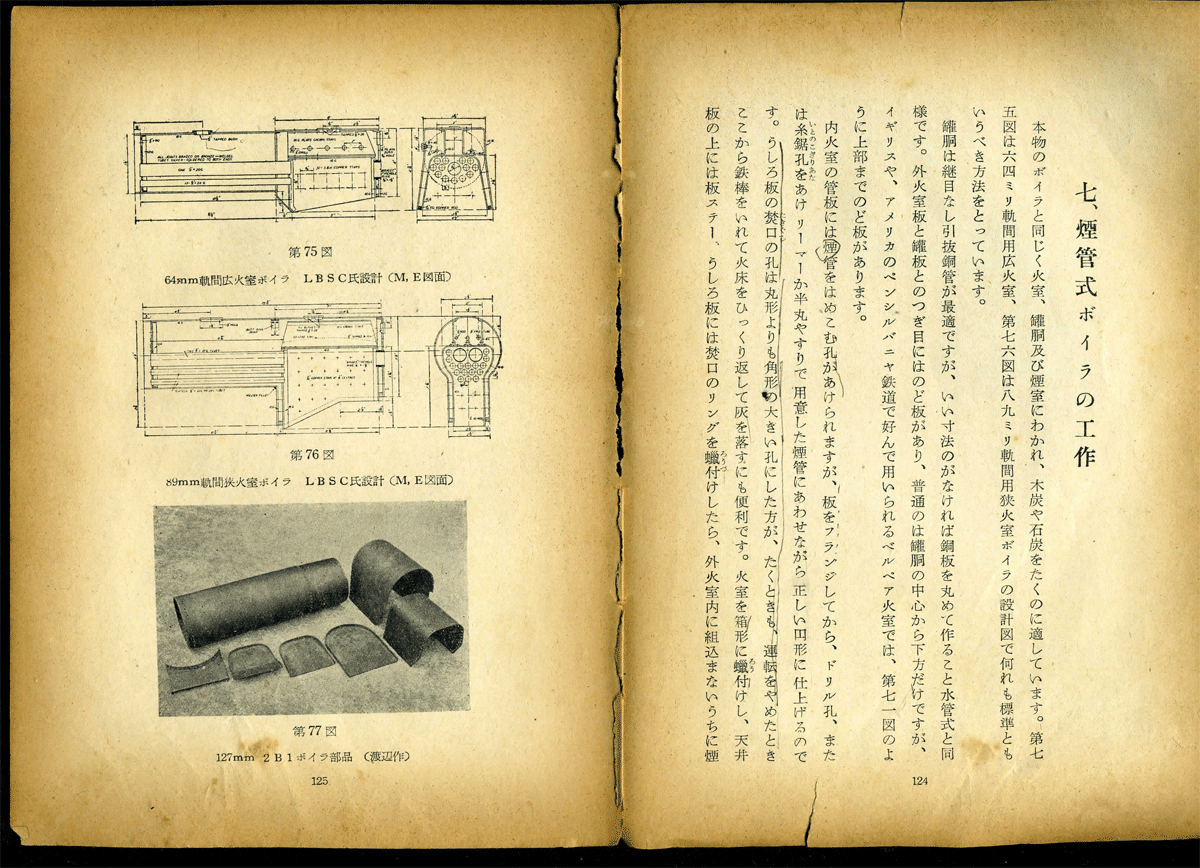 七、煙管式ボイラの工作
本物のボイラと同じく火室、罐胴及び煙室にわかれ、木炭や石炭をたくのに適しています。第七
五図は六四ミリ軌間用広火室、第七六図は八九ミリ軌間用狭火室ボイラの設計図で何れも標準とも
いうべき方法をとっています。
罐胴は継目なし引抜銅管が最適ですが、いい寸法のがなければ銅板を丸めて作ること水管式と同
様です。外火室板と罐板とのつぎ目にはのど板があり、普通のは罐胴の中心から下方だけですが、
イギリスや、アメリカのペンシルバニヤ鉄道で好んで用いられるベルペア火室では、第七一図のよ
うに上部までのど板があります。
内火室の管板には煙管をはめこむ孔があけられますが、板をフランジしてから、ドリル孔、また
は糸鋸孔をあけ リーマーか半丸やすりで 用意した煙管にあわせながら 正しい円形に 仕上げるので
す。うしろ板の焚口の孔は丸形よりも角形の大きい孔にした方が、たくときも、運転をやめたとき
ここから鉄棒をいれて火床をひっくり返して灰を落すにも便利です。火室を箱形に蠟付けし、天井
板の上には板ステー、うしろ板には焚口のリングを蠟付けしたら、外火室内に組込まないうちに煙
124
第75図
64mm軌間広火室ボイラ LBSC氏設計(M,E図面)
第76図
89mm軌間狭火室ボイラ LBSC氏設計(M,E図面)
第77図
127mm 2B1ボイラ部品 (渡辺作)
125